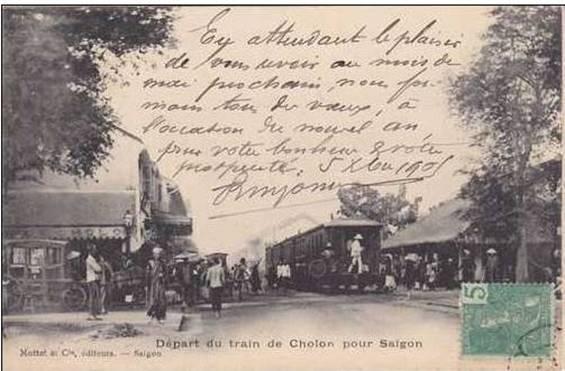 En attendant le plaisir
de vous revoir au mois de
mai prochain, nous for-
mons tous des vœux, à
l'occasion du nouvel an
pour votre bonheur & votre
prospérité. 5 Xbre 1905
Départ du train de Cholon pour Saigon
Mottet & Cie, éditeurs. — Saigon
5